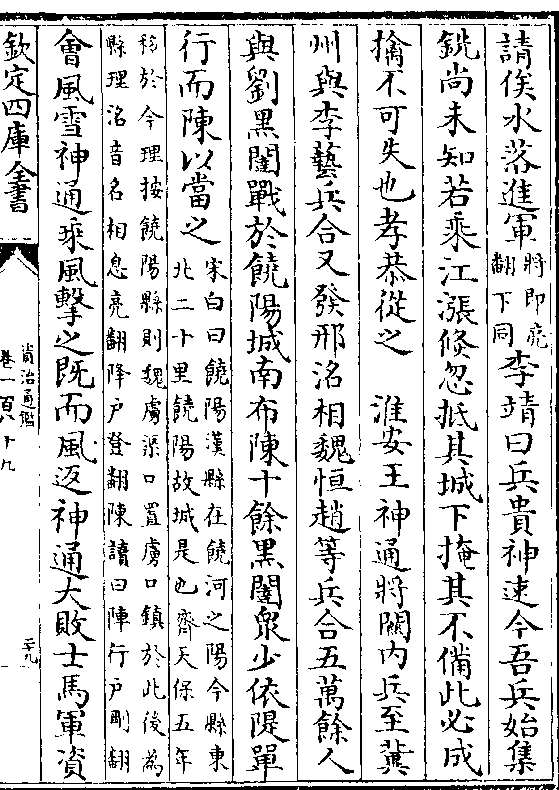 請俟水落進軍將即亮翻下同李靖曰兵貴神速今吾兵始集
銑尚未知若乘江漲倐忽抵其城下掩其不備此必成
擒不可失也孝恭從之　淮安王神通將關内兵至冀
州與李藝兵合又發邢洺相魏恒趙等兵合五萬餘人
與劉黑闥戰於饒陽城南布陳十餘黑闥衆少依隄單
行而陳以當之宋白曰饒陽漢縣在饒河之陽今縣東北二十里饒陽故城是也齊天保五年
移於今理按饒陽縣則魏虜渠口置虜口鎮於此後為縣理洺音名相息亮翻降户登翻陳讀曰陣行户剛翻
會風雪神通乘風擊之既而風返神通大敗士馬軍資
欽定四庫全書
資治通鑑
卷一百八十九
二十九